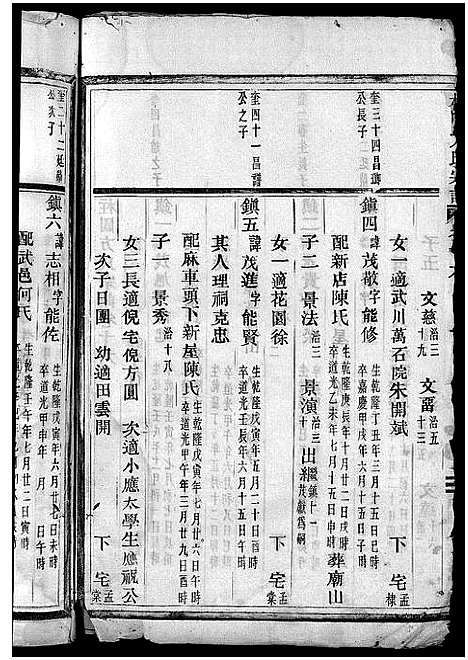 文慈 治三 十九
文富 治五 十三
女一適武川萬石院朱開斌
下宅 孟棣
奎三十四昌
公長子
鎮四 諱茂敬字能修 生乾隆丁丑年三月十五日巳時 卒嘉慶甲戌年六月十五日子時
配新店陳氏 生乾隆庚辰年十月廿二日戌時 卒道光乙未年七月十五日申時 葬廟山
子二 景法 治三 景演 治三 十 出繼 鎮十一 茂獻爲嗣
女一適花園徐
下宅 孟棠
奎四十一昌
公之子
鎮五 諱茂進字能賢 生乾隆戊寅年五月二十日酉時 卒道光壬辰年六月十五日午時
其人理祠克忠
配麻車頭下新屋陳氏 生乾隆戊寅年七月廿六 卒道光甲午年三月廿九日酉時
子一 景秀 治十八
女三長適倪宅倪方圓 次適小應太學生應祝公
次子日團 幼適田雲開
下宅 孟棠
奎二十二廷
公次子
鎮六 諱志相字能佐 生乾隆戊寅年六月廿七日未時 卒道光甲申年 月 日午時
配武邑何氏 生乾隆壬午年七月廿二日寅時